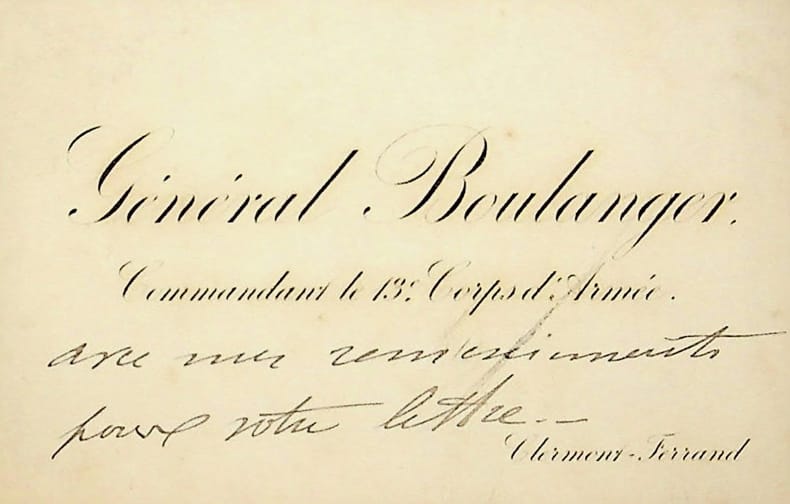 Général Boulanger.
Commandant le 13e. Corps d'Armée.
avec mes remerciements
pour votre lettre. —
Clermont-Ferrand